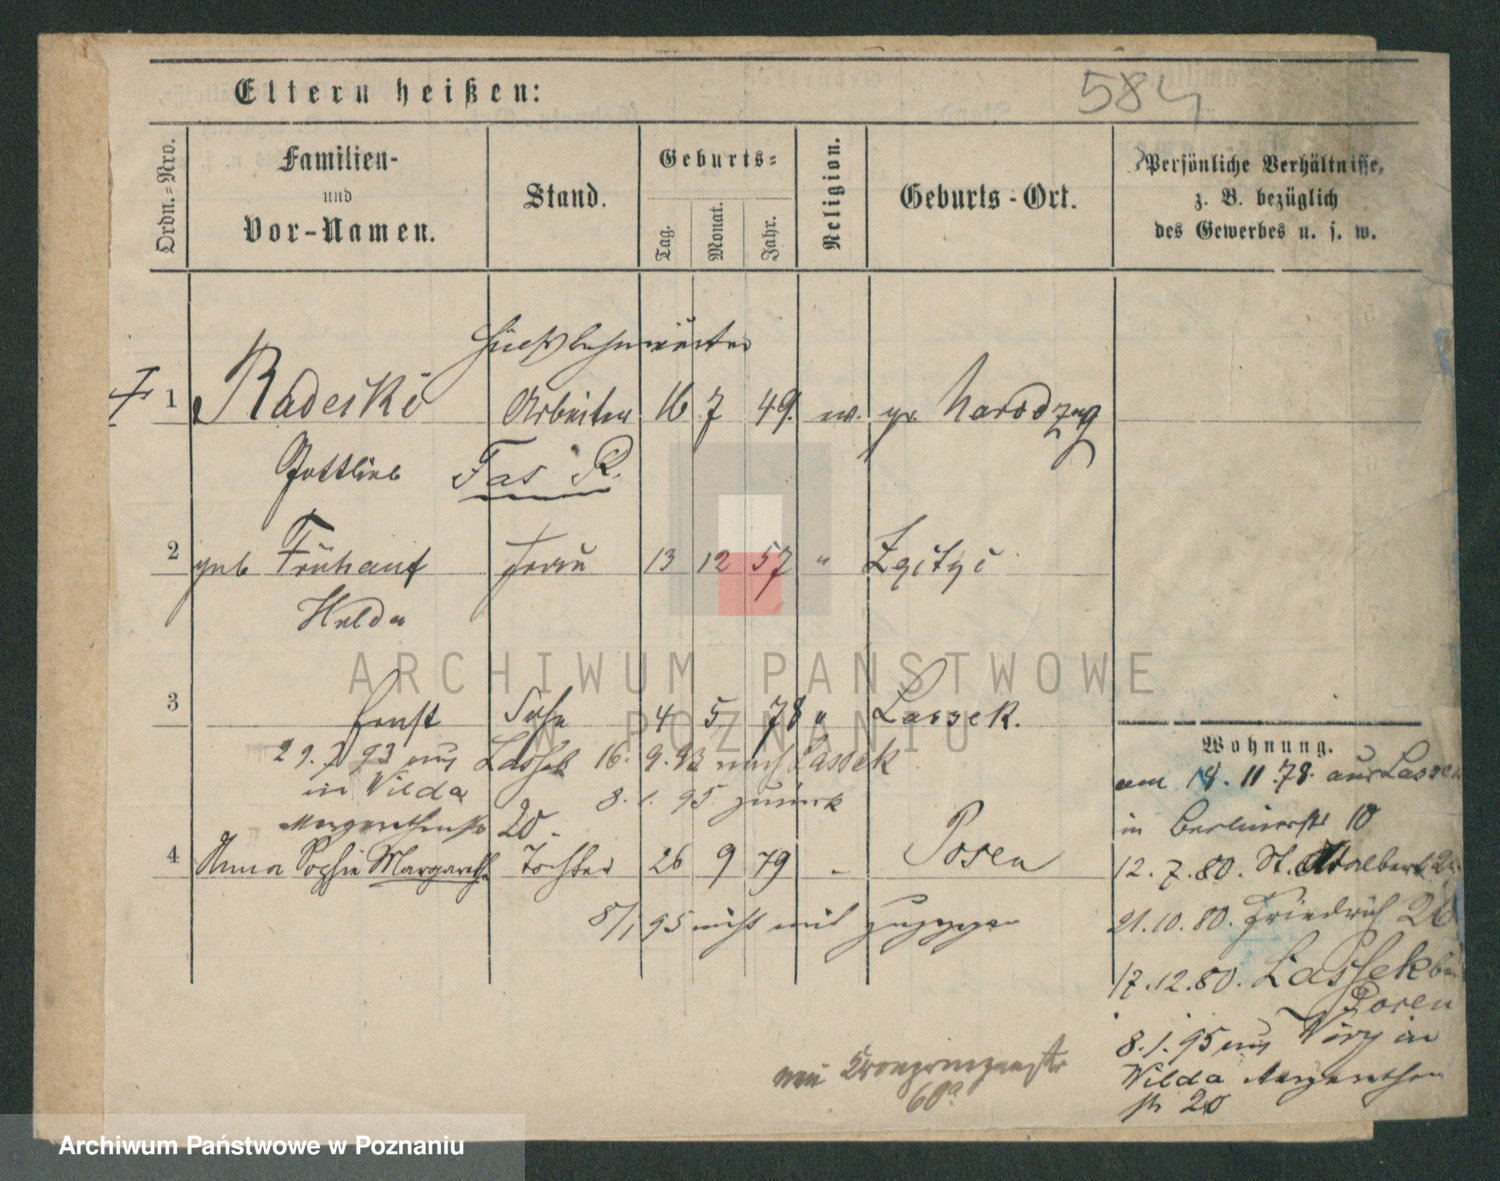 Eltern heißen:
584
Ordn.-Nro.
Familien-
und
Vor-Namen.
Stand.
Geburts-
Tag.
Monat.
Jahr.
Religion.
Geburts-Ort.
Persönliche Verhältnisse,
z. B. bezüglich
des Gewerbes u. s. w.
1 Radeiski Arbeiter 16 7 49. ev. gr.
Gottlieb
2 geb Frühauf Frau 13 12 57 "
Helda
3 Ernst Sohn 4 5 78 " Lassek.
29. 7 93 aus Lassek 16. 9. 93 nach Lassek
in Wilda 8. 1. 95 zurück
Margarethenstr 20.
4 Anna Sophie Margarethe Tochter 26 9 79 Posen
8/1 95 nicht mit zugezogen
Wohnung.
am 18. 11. 78. aus Lassek
in Berlinerstr 10
12. 7. 80. St. Adalbert
21. 10. 80. Friedrich 26
17. 12. 80. Lassek bei
Posen
8. 1. 95 aus in
Wilda Margarethen
str 20
Kronprinzenstr
60a
ARCHIWUM PAŃSTWOWE
W POZNANIU
Archiwum Państwowe w Poznaniu